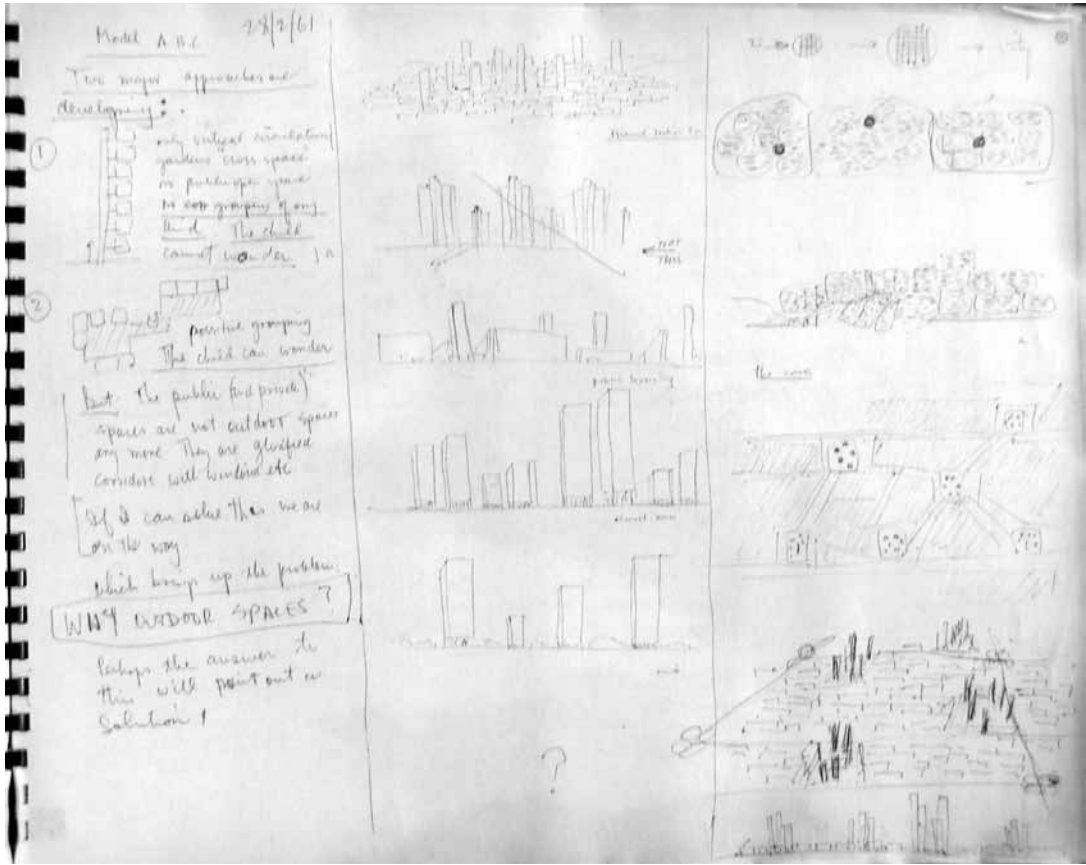 Model A B C 28/2/61
Two major approaches are
developing :
1
only vertical circulation
gardens cross space
no public open space
no grouping of any
kind The child
cannot wonder
2
positive grouping
The child can wonder
But The public (and private)
spaces are not outdoor spaces
any more They are glorified
corridors with windows etc
If it can solve this we are
on the way
which brings up the problem
WHY OUTDOOR SPACES?
Perhaps the answer to
this will point out a
Solution !
NOT
THIS
?
The core